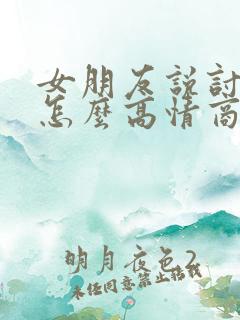 女朋友说討
怎麼高情商
明月夜色2
未经同意禁止搭載